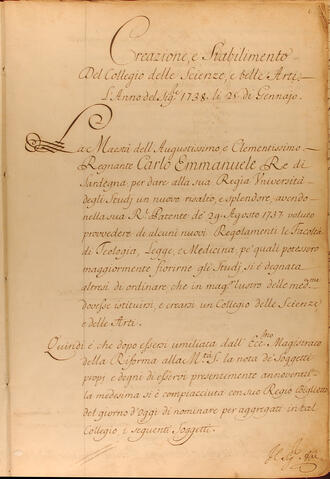 Creazione, e Stabilimento
Del Collegio delle Scienze, e belle Arti
L'Anno del Sig.re 1738. li 25. di Gennajo.
La Maestà dell'Augustissimo, e Clementissimo
Regnante Carlo Emmanuele Re di
Sardegna per dare alla sua Regia Vniversità
degli Studj un nuovo risalto, e splendore, avendo
nella sua R.a Patente de' 29. Agosto 1737. voluto
provvedere di alcuni nuovi Regolamenti le Facoltà
di Teologia, Legge, e Medicina, pe' quali potessero
maggiormente fiorirne gli Studj si è degnata
altresì di ordinare, che in mag.r lustro delle med.me
dovesse istituirsi, e crearsi un Collegio delle Scienze
e delle Arti.
Quindi è che dopo essersi umiliata dall'Ecc.mo Magistraco
della Riforma alla M.tà S. la nota de' Soggetti
propj e degni di esservi presentemente annoverati
la medesima si è compiacciuta con suo Regio Biglietto
del giorno d'oggi di nominare per aggregati in tal
Collegio, i seguenti Soggetti.
Il Sig.r